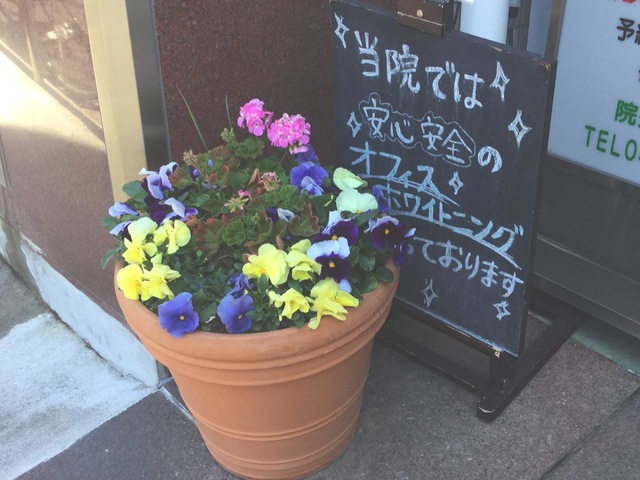 当院では
安心安全の
オフィス
ホワイトニング
ております
予
院
TEL0